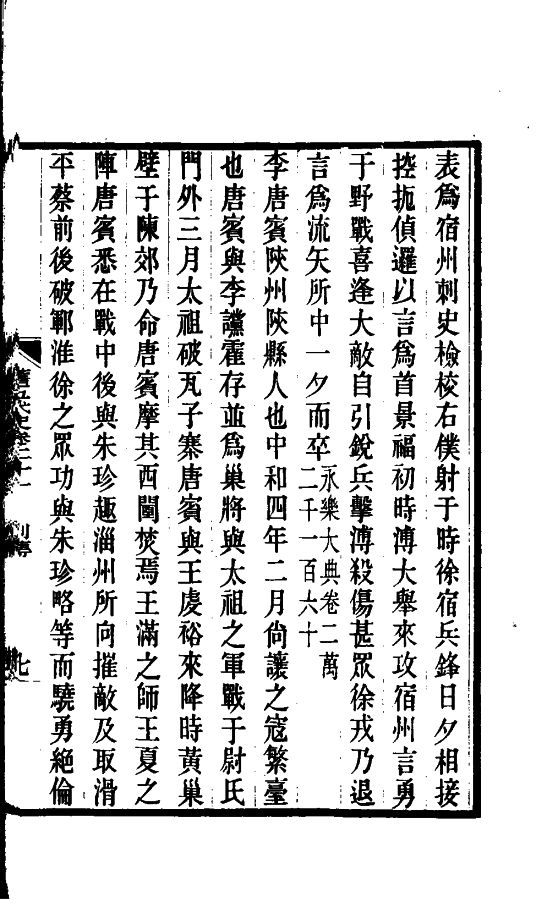 表爲宿州刺史檢校右僕射于時徐宿兵鋒日夕相接
控扼偵邏以言爲首景福初時溥大舉來攻宿州言勇
于野戰喜逢大敵自引銳兵擊溥殺傷甚眾徐戎乃退
言爲流矢所中一夕而卒永樂大典卷二萬二千一百六十
李唐賓陝州陝縣人也中和四年二月尙讓之寇繁臺
也唐賓與李讜霍存並爲巢將與太祖之軍戰于尉氏
門外三月太祖破瓦子寨唐賓與王虔裕來降時黃巢
壁于陳郊乃命唐賓摩其西闉焚焉王滿之師王夏之
陣唐賓悉在戰中後與朱珍趣淄州所向摧敵及取滑
平蔡前後破鄆淮徐之眾功與朱珍略等而驍勇絕倫
舊五代史卷二十一 列傳 七